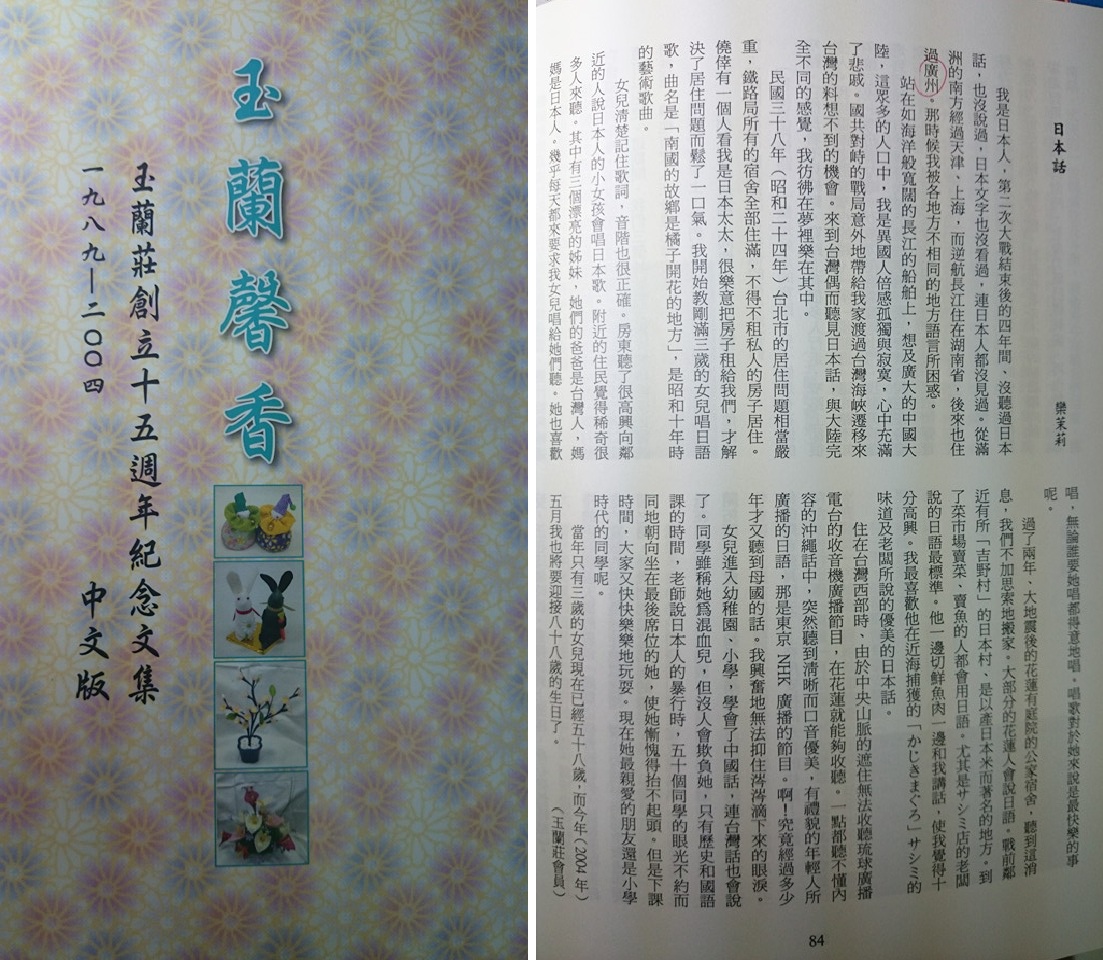 玉蘭馨香
玉蘭莊創立十五週年紀念文集
一九八九—二〇〇四
中文版
日本話
欒茉莉
我是日本人，第二次大戰結束後的四年間、沒聽過日本
話，也沒說過，日本文字也沒看過，連日本人都沒見過。從滿
洲的南方經過天津、上海，而逆航長江住在湖南省，後來也住
過廣州。那時候我被各地方不相同的地方語言所困惑。
站在如海洋般寬闊的長江的船舶上，想及廣大的中國大
陸，這眾多的人口中，我是異國人倍感孤獨與寂寞，心中充滿
了悲戚。國共對峙的戰局意外地帶給我家渡過台灣海峽遷移來
台灣的料想不到的機會。來到台灣偶而聽見日本話，與大陸完
全不同的感覺，我彷彿在夢裡樂在其中。
民國三十八年（昭和二十四年）台北市的居住問題相當嚴
重，鐵路局所有的宿舍全部住滿，不得不租私人的房子居住。
僥倖有一個人看我是日本太太，很樂意把房子租給我們，才解
決了居住問題而鬆了一口氣。我開始教剛滿三歲的女兒唱日語
歌，曲名是「南國的故鄉是橘子開花的地方」，是昭和十年時
的藝術歌曲。
女兒清楚記住歌詞，音階也很正確。房東聽了很高興向鄰
近的人說日本人的小女孩會唱日本歌。附近的住民覺得稀奇很
多人來聽。其中有三個漂亮的姊妹，她們的爸爸是台灣人，媽
媽是日本人。幾乎每天都來要求我女兒唱給她們聽。她也喜歡
唱，無論誰要她唱都得意地唱。唱歌對於她來說是最快樂的事
呢。
過了兩年、大地震後的花蓮有庭院的公家宿舍，聽到這消
息，我們不加思索地搬家。大部分的花蓮人會說日語。戰前鄰
近有所「吉野村」的日本村、是以產日本米而著名的地方。到
了菜市場賣菜、賣魚的人都會用日語。尤其是サシミ店的老闆
說的日語最標準。他一邊切鮮魚肉一邊和我講話，使我覺得十
分高興。我最喜歡他在近海捕獲的「かじきまぐろ」サシミ的
味道及老闆所說的優美的日本話。
住在台灣西部時、由於中央山脈的遮住無法收聽琉球廣播
電台的收音機廣播節目，在花蓮就能夠收聽。一點都聽不懂內
容的沖繩話中，突然聽到清晰而口音優美，有禮貌的年輕人所
廣播的日語，那是東京 NHK 廣播的節目。啊！究竟經過多少
年才又聽到母國的話。我興奮地無法抑住涔涔滴下來的眼淚。
女兒進入幼稚園、小學，學會了中國話，連台灣話也會說
了。同學雖稱她為混血兒，但沒人會欺負她，只有歷史和國語
課的時間，老師說日本人的暴行時，五十個同學的眼光不約而
同地朝向坐在最後席位的她，使她慚愧得抬不起頭。但是下課
時間，大家又快快樂樂地玩耍。現在她最親愛的朋友還是小學
時代的同學呢。
當年只有三歲的女兒現在已經五十八歲，而今年（2004 年）
五月我也將要迎接八十八歲的生日了。
（玉蘭莊會員）
84